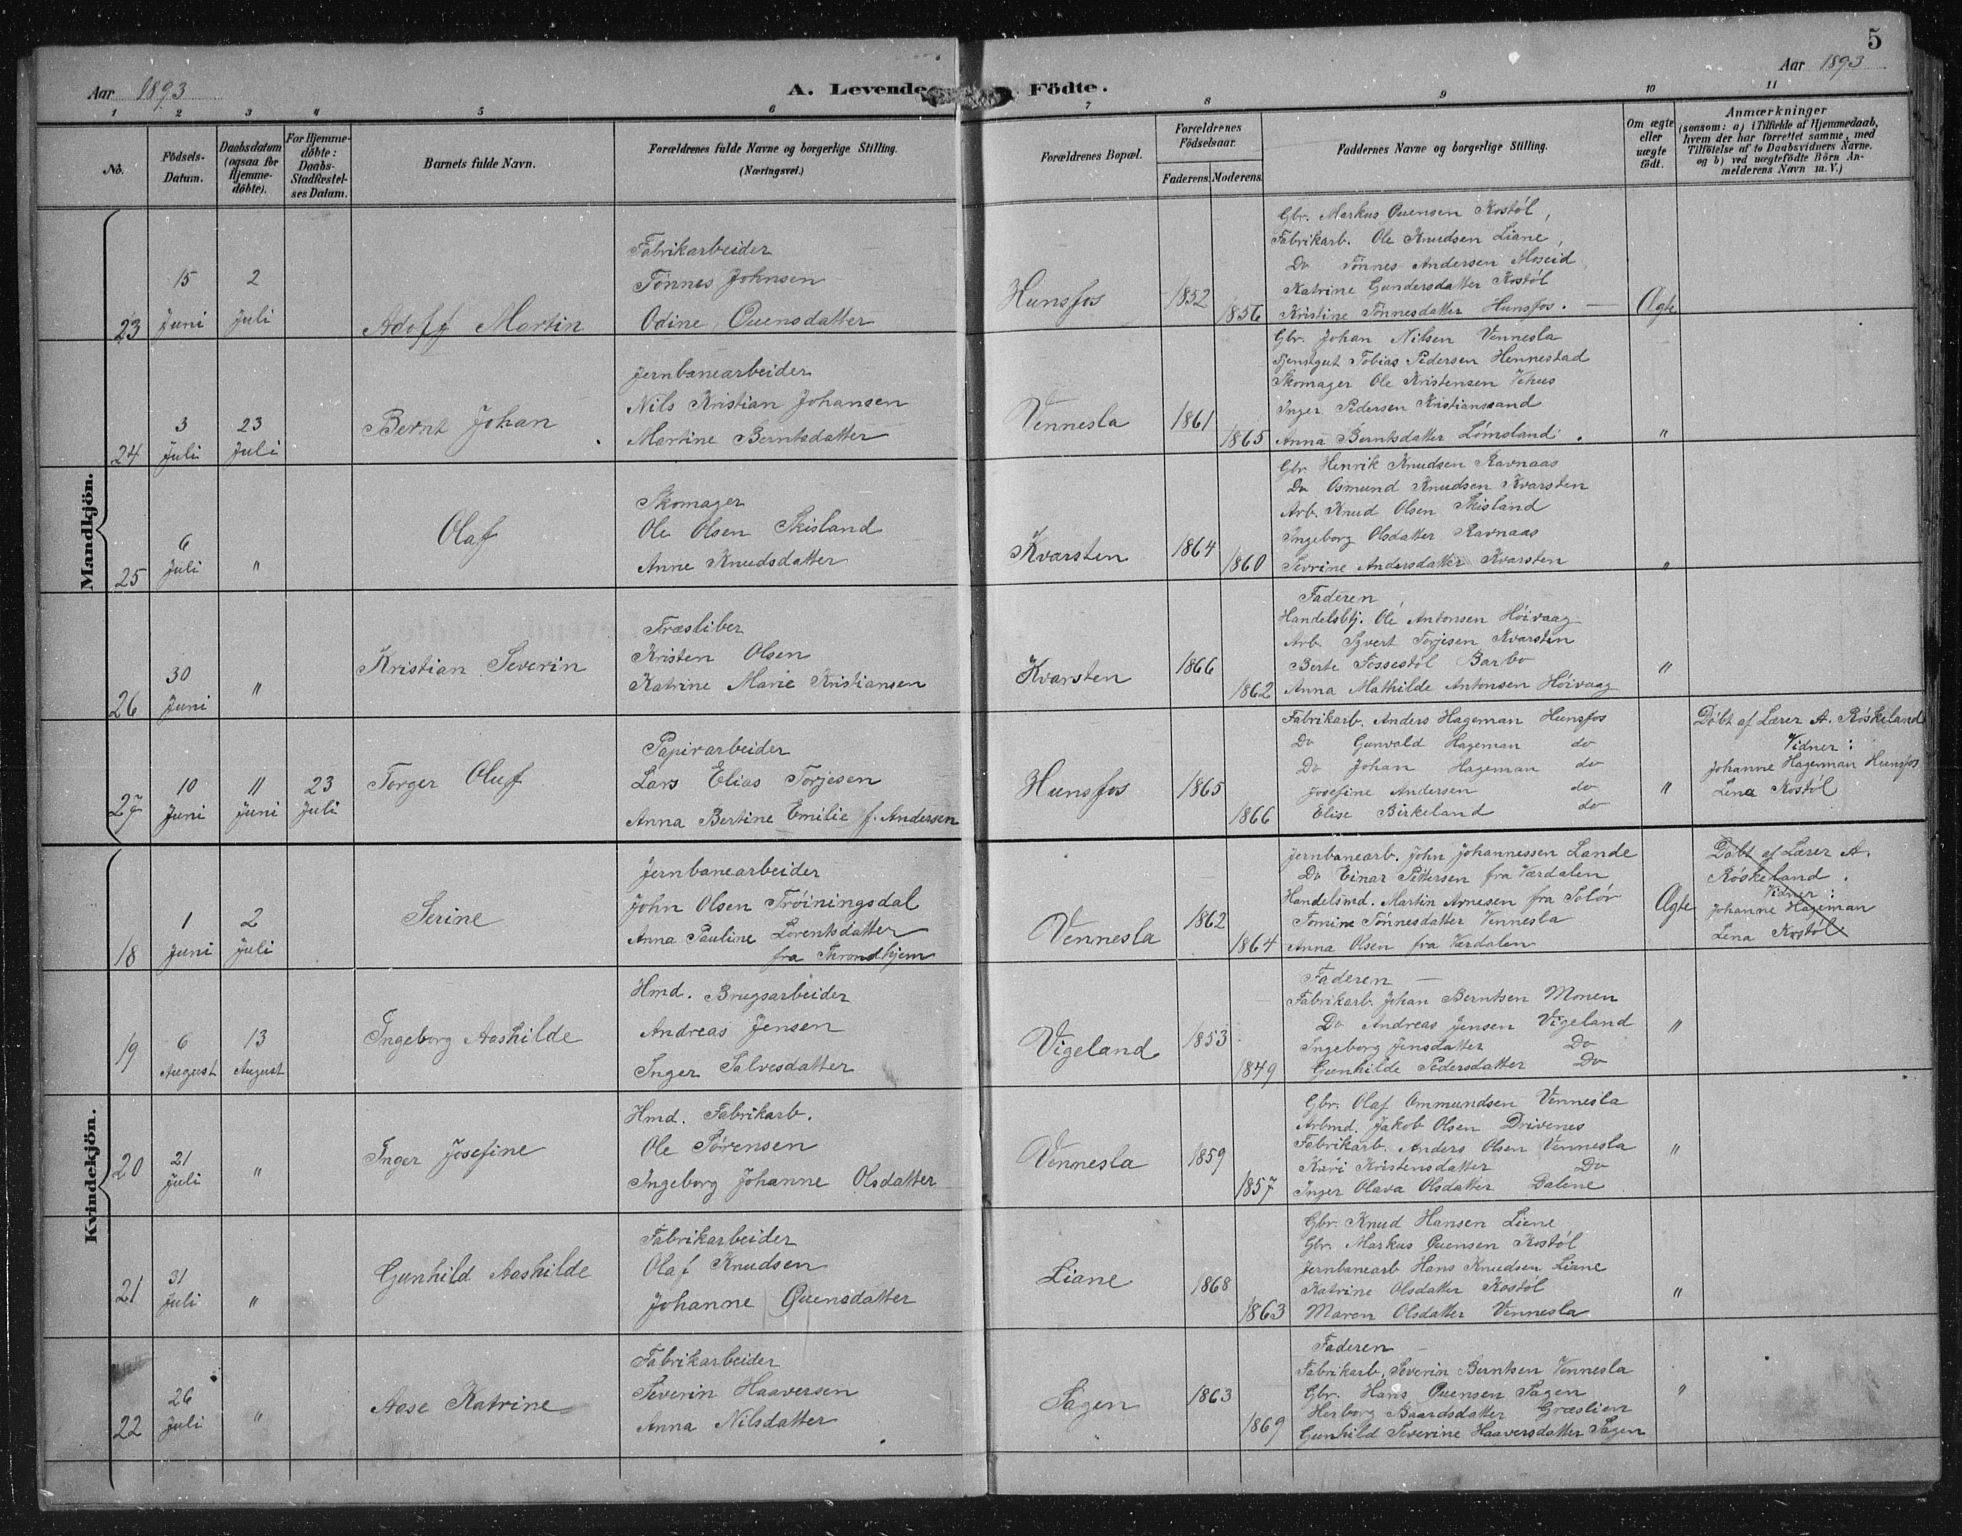 5
Aar 1893
A. Levende Födte.
Aar 1893
1 2 3 4 5 6 7 8 9 10 11
No.
Födsels-
Datum.
Daabsdatum
(ogsaa for
Hjemme-
döbte).
For Hjemme-
döbte:
Daabs-
Stadfæstel-
ses Datum.
Barnets fulde Navn.
Forældrenes fulde Navne og borgerlige Stilling.
(Næringsvei.)
Forældrenes Bopæl.
Forældrenes
Födselsaar.
Faderens. Moderens.
Faddernes Navne og borgerlige Stilling.
Om ægte
eller
uægte
födt.
Anmærkninger
(saasom: a) i Tilfælde af Hjemmedaab,
hvem der har forrettet samme, med
Tilföielse af to Daabsvidners Navne.
og b) ved uægtefödte Börn An-
melderens Navn m. V.)
Mandkjön.
23
15
Juni
2
Juli
Adolf Martin
Fabrikarbeider
Tønnes Johnsen
Odine Ouensdatter
Hunsfos
1852
1856
Gbr. Markus Ouensen Kostøl,
Fabrikarb. Ole Knudsen Liane,
Do Tønnes Andersen Moseid
Katrine Gundersdatter Kostøl
Kristine Tønnesdatter Hunsfos. —
Ægte
24
3
Juli
23
Juli
Bernt Johan
Jernbanearbeider
Nils Kristian Johansen
Martine Berntsdatter
Vennesla
1861
1865
Gbr. Johan Nilsen Vennesla
Tjenstgut Tobias Pedersen Hennestad
Skomager Ole Kristensen Vehus
Inger Pedersen Kristianssand
Anna Berntsdatter Lømsland.
"
25
6
Juli
"
Olaf
Skomager
Ole Olsen Skisland
Anne Knudsdatter
Kvarsten
1864
1860
Gbr. Henrik Knudsen Ravnaas
Do Osmund Knudsen Kvarsten
Arb. Knud Olsen Skisland
Ingeborg Olsdatter Ravnaas
Sevrine Andersdatter Kvarsten
"
26
30
Juni
"
Kristian Severin
Træsliber
Kristen Olsen
Katrine Marie Kristiansen
Kvarsten
1866
1862
Faderen
Handelsbtj. Ole Antonsen Høivaag
Arb. Syvert Torjesen Kvarsten
Berte Fossestøl Barbo
Anna Mathilde Antonsen Høivaag
"
27
10
Juni
11
Juni
23
Juli
Torger Oluf
Papirarbeider
Lars Elias Torjesen
Anna Bertine Emilie f. Andersen
Hunsfos
1865
1866
Fabrikarb. Anders Hageman Hunsfos
Do Gunvald Hageman do
Do Johan Hageman do
Josefine Andersen do
Elise Birkeland do
"
Døbt af Lærer A. Røskeland
Vidner:
Johanne Hageman Hunsfos
Lena Kostøl
Kvindekjön.
18
1
Juni
2
Juli
Serine
Jernbanearbeider
John Olsen Trøiningsdal
Anna Pauline Lorentsdatter
fra Throndhjem
Vennesla
1862
1864
Jernbanearb. John Johannessen Lande
Do Einar Pettersen fra Værdalen
Handelsmd. Martin Arnesen fra Soløv
Tomine Tønnesdatter Vennesla
Anna Olsen fra Værdalen
Ægte
Døbt af Lærer A.
Røskeland.
Vidner:
Johanne Hageman
Lena Kostøl
19
6
August
13
August
Ingeborg Aashilde
Hmd. Brugsarbeider
Andreas Jensen
Inger Salvesdatter
Vigeland
1853
1849
Faderen —
Fabrikarb. Johan Berntsen Monen
Do Andreas Jensen Vigeland
Ingeborg Jensdatter Do
Gunhilde Pedersdatter Do
"
20
21
Juli
"
Inger Josefine
Hmd. Fabrikarb.
Ole Sørensen
Ingeborg Johanne Olsdatter
Vennesla
1859
1857
Gbr. Olaf Ommundsen Vennesla
Arbmd. Jakob Olsen Drivenes
Fabrikarb. Anders Olsen Vennesla
Kari Kristensdatter Do
Inger Olava Olsdatter Dalene
"
21
31
Juli
"
Gunhild Aashilde
Fabrikarbeider
Olaf Knudsen
Johanne Ouensdatter
Liane
1868
1863
Gbr. Knud Hansen Liane
Gbr. Markus Ouensen Kostøl
Jernbanearb Hans Knudsen Liane
Katrine Olsdatter Kostøl
Maren Olsdatter Vennesla
"
22
26
Juli
"
Aase Katrine
Fabrikarbeider
Severin Haaversen
Anna Nilsdatter
Sagen
1863
1869
Faderen —
Fabrikarb. Severin Berntsen Vennesla
Gbr. Hans Ouensen Sagen
Herborg Baardsdatter Græslien
Gunhild Severine Haaversdatter Sagen
"